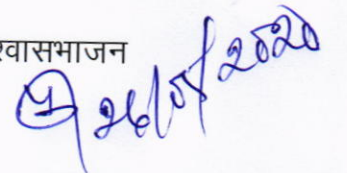 श्वासभाजन
26/05/2020